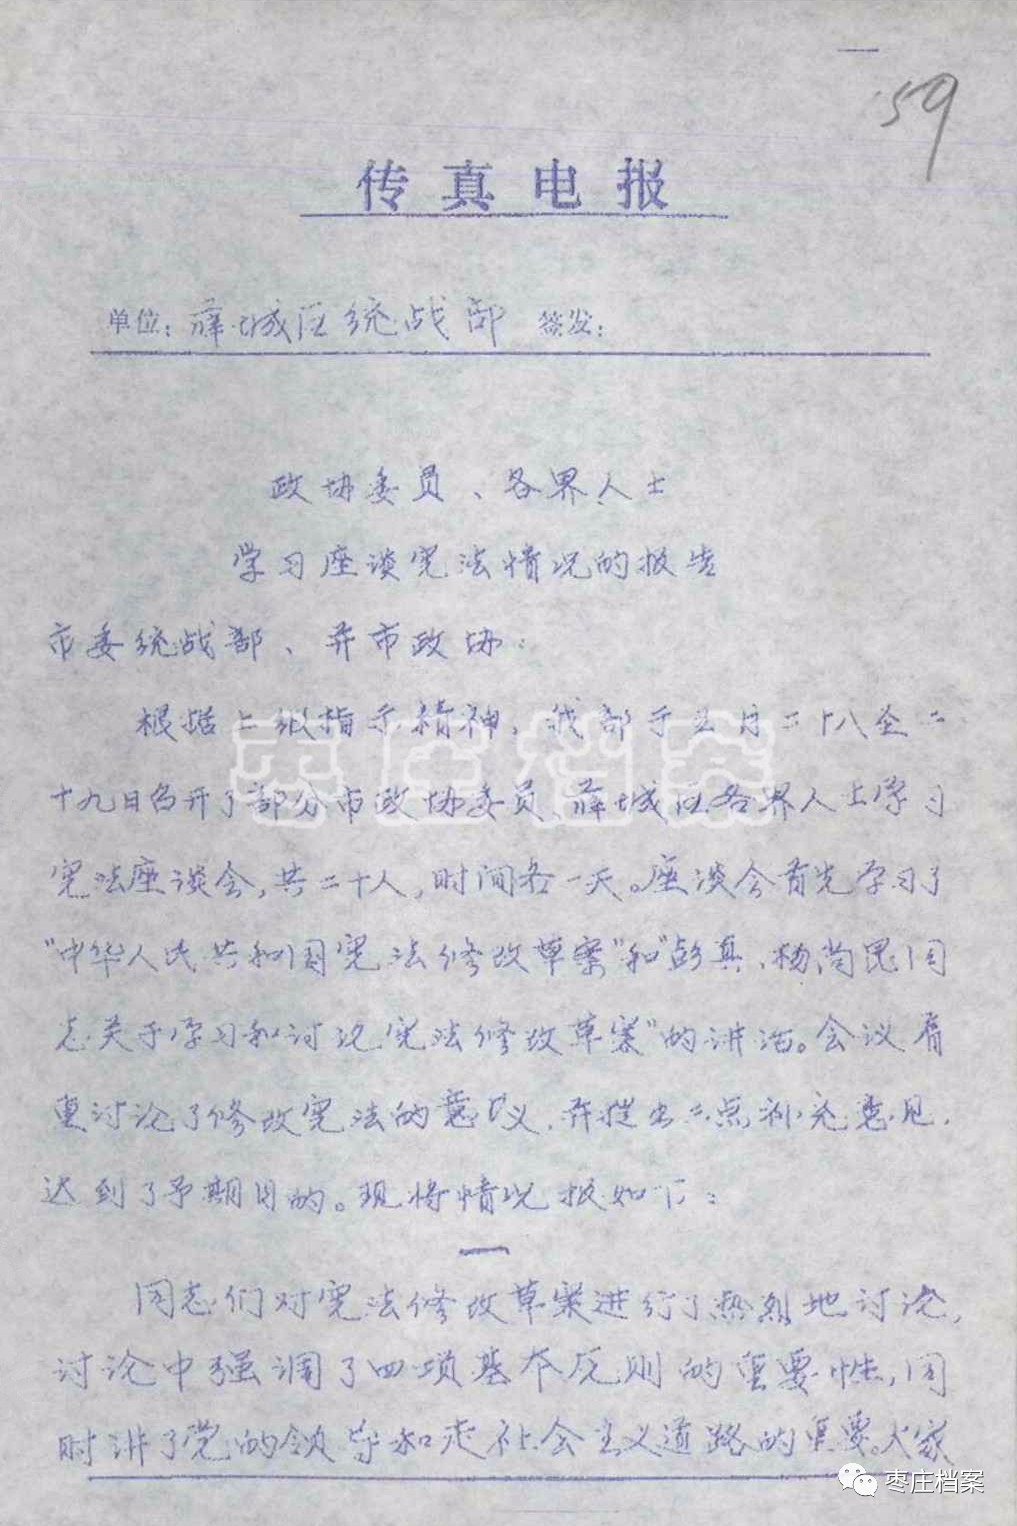 59
传真电报
单位：薛城区统战部 签发：
政协委员、各界人士
学习座谈宪法情况的报告
市委统战部、并市政协：
根据上级指示精神，我部于五月二十八至二
十九日召开了部分市政协委员、薛城区各界人士学习
宪法座谈会，共二十人，时间各一天。座谈会首先学习了
“中华人民共和国宪法修改草案”和“彭真、杨尚昆同
志关于学习和讨论宪法修改草案”的讲话。会议着
重讨论了修改宪法的意义，并提出二点补充意见，
达到了予期目的。现将情况报如下：
一
同志们对宪法修改草案进行了热烈地讨论，
讨论中强调了四项基本原则的重要性，同
时讲了党的领导和走社会主义道路的重要。大家
枣庄档案
枣庄档案